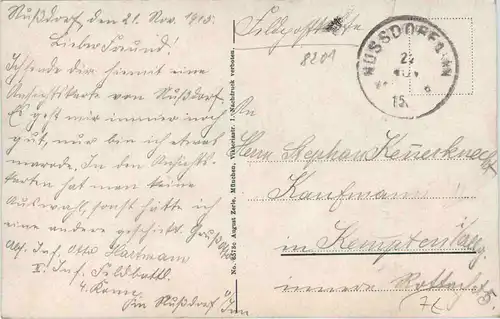 Nußdorf, den 21. Nov. 1915.
Lieber Freund!
Ich sende dir hiemit eine
Ansichtskarte von Nußdorf.
Es geht mir immer noch
gut, nur bin ich etwas
marode. In den Ansichts-
karten hat man keine
Auswahl, sonst hätte ich
eine andere geschickt. Gruß
Abs. Inf. Otto Hartmann
Inf. Feldbattl.
4. Komp.
Nußdorf a/Inn
No. 8573c August Zerle, München, Viktoriastr. 1/ Nachdruck verboten.
Feldpostkarte
8201
NUSSDORF A. INN
15
An
Herrn Stephan
Kaufmann
in Kempten Allg.
innere